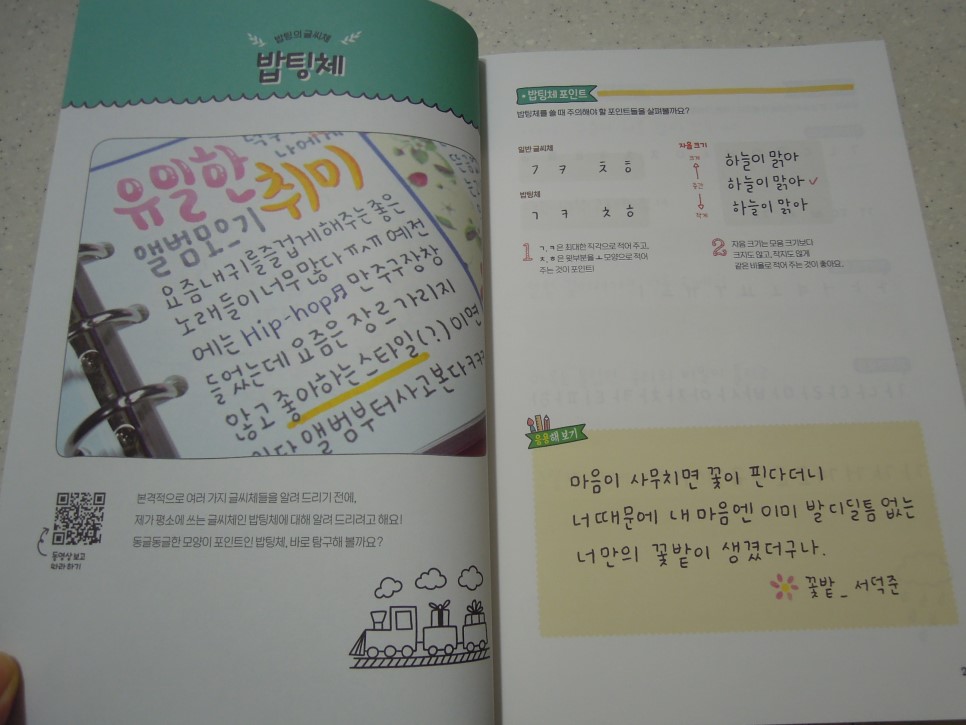 밥팅의 글씨체
밥팅체
나에게
유일한 취미
앨범모으기
요즘 내 귀를 즐겁게 해주는 좋은
노래들이 너무 많다ㅠㅠ 예전
에는 Hip-hop♬ 만 주구장창
들었는데 요즘은 장르 가리지
않고 좋아하는 스타일(?)이면
앨범부터 사고 본다ㅋㅋㅋ
동영상 보고
따라 하기
본격적으로 여러 가지 글씨체들을 알려 드리기 전에,
제가 평소에 쓰는 글씨체인 밥팅체에 대해 알려 드리려고 해요!
동글동글한 모양이 포인트인 밥팅체, 바로 탐구해 볼까요?
•밥팅체 포인트
밥팅체를 쓸 때 주의해야 할 포인트들을 살펴볼까요?
일반 글씨체
ㄱ ㅋ ㅊ ㅎ
밥팅체
ㄱ ㅋ ㅊ ㅎ
1 ㄱ, ㅋ은 최대한 직각으로 적어 주고,
ㅊ, ㅎ은 윗부분을 ㅗ 모양으로 적어
주는 것이 포인트!
자음 크기
크게
중간
작게
하늘이 맑아
하늘이 맑아 ✓
하늘이 맑아
2 자음 크기는 모음 크기보다
크지도 않고, 작지도 않게
같은 비율로 적어 주는 것이 좋아요.
응용해 보기
마음이 사무치면 꽃이 핀다더니
너 때문에 내 마음엔 이미 발 디딜 틈 없는
너만의 꽃밭이 생겼더구나.
꽃밭_ 서덕준